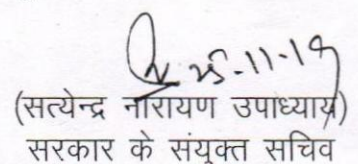 25-11-19
(सत्येन्द्र नारायण उपाध्याय)
सरकार के संयुक्त सचिव